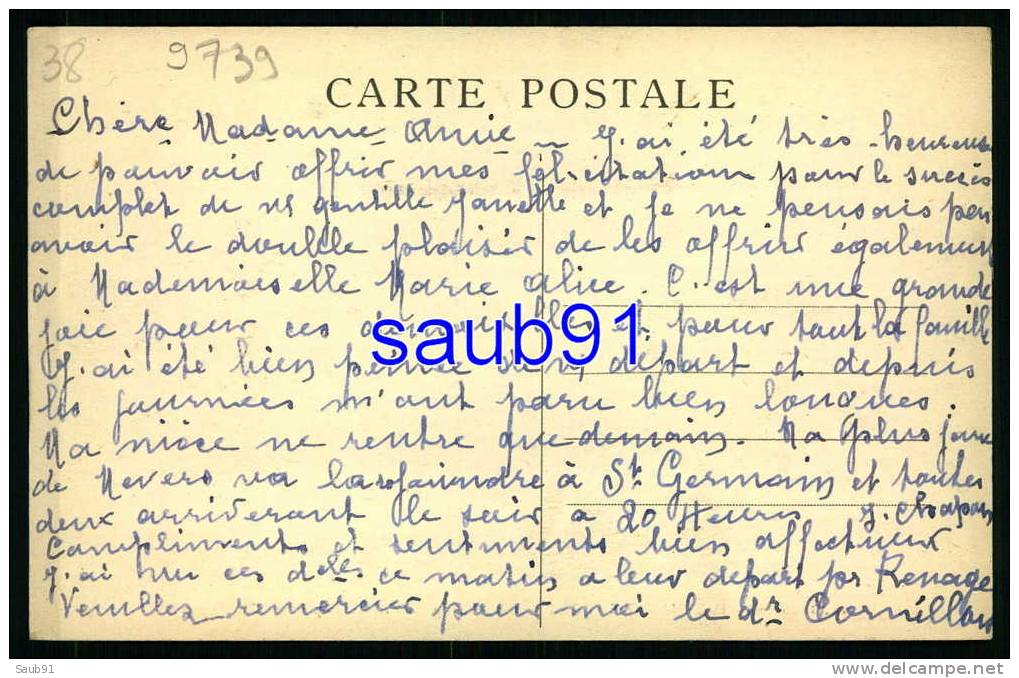 38 9739
CARTE POSTALE
Chère Madame Anie _ J. ai été très heureuse
de pouvoir offrir mes félicitation pour le succès
complet de vs gentille Janette et je ne pensais pas
avoir le double plaisir de les offrir également
à Mademoiselle Marie Alice. C. est une grande
joie pour ces et pour tout la famille
J. ai été bien peinée de vs départ et depuis
les journées m'ont paru bien longues.
Ma nièce ne rentre que demain. Ma plus jeune
de Nevers va la rejoindre à St Germain et toutes
deux arriveront le soir a 20 Heures
Compliments et sentiments bien affectueux
J. ai vu ces delles ce matin a leur départ pr Renage
Veuillez remercier pour moi le dr Cornillon
saub91
Saub91
www.delcampe.net